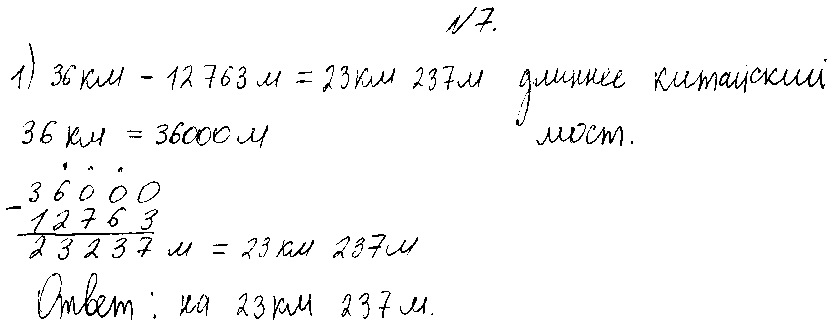 №7.
1) 36 км - 12 763 м = 23 км 237 м длиннее китайский
36 км = 36000 м мост.
36000
- 12763
23237 м = 23 км 237 м
Ответ: на 23 км 237 м.